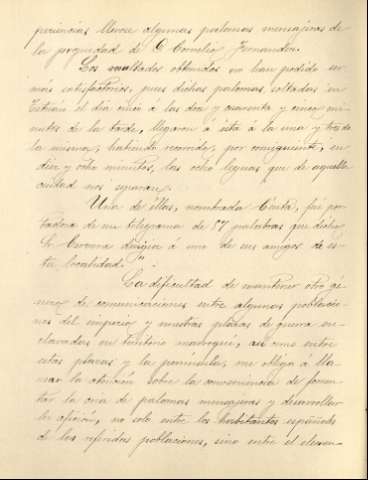 periencias llevose algunas palomas mensajeras de
la propiedad de D Cornelio Fernandez.
Los resultados obtenidos no han podido ser
más satisfactorios, pues dichas palomas, soltadas en
Tetuán el día ocho á las doce y cuarenta y cinco mi-
nutos de la tarde, llegaron á ésta á la una y tres de
la misma, habiendo recorrido, por consiguiente, en
diez y ocho minutos, las ocho leguas que de aquella
ciudad nos separan.
Una de éllas, nombrada Ceuta, fué por-
tadora de un telegrama de 57 palabras que dicho
Sr Cervera dirigia á uno de sus amigos de es-
ta localidad."
La dificultad de mantener otro gé-
nero de comunicaciones entre algunas poblacio-
nes del imperio y nuestras plazas de guerra en-
clavadas en territorio marroquí, así como entre
estas plazas y la península, me obliga á lla-
mar la atención sobre la conveniencia de fomen-
tar la cria de palomas mensajeras y desarrollar
la afición, no solo entre los habitantes españoles
de las referidas poblaciones, sino entre el elemen-